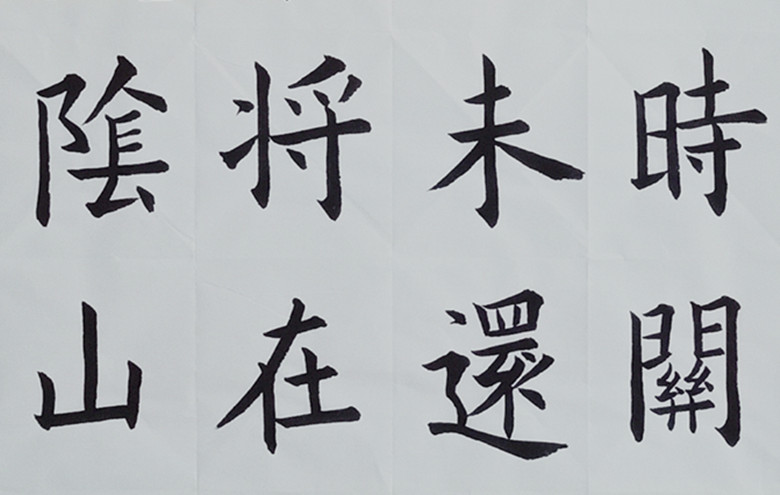 時關
未還
将在
陰山